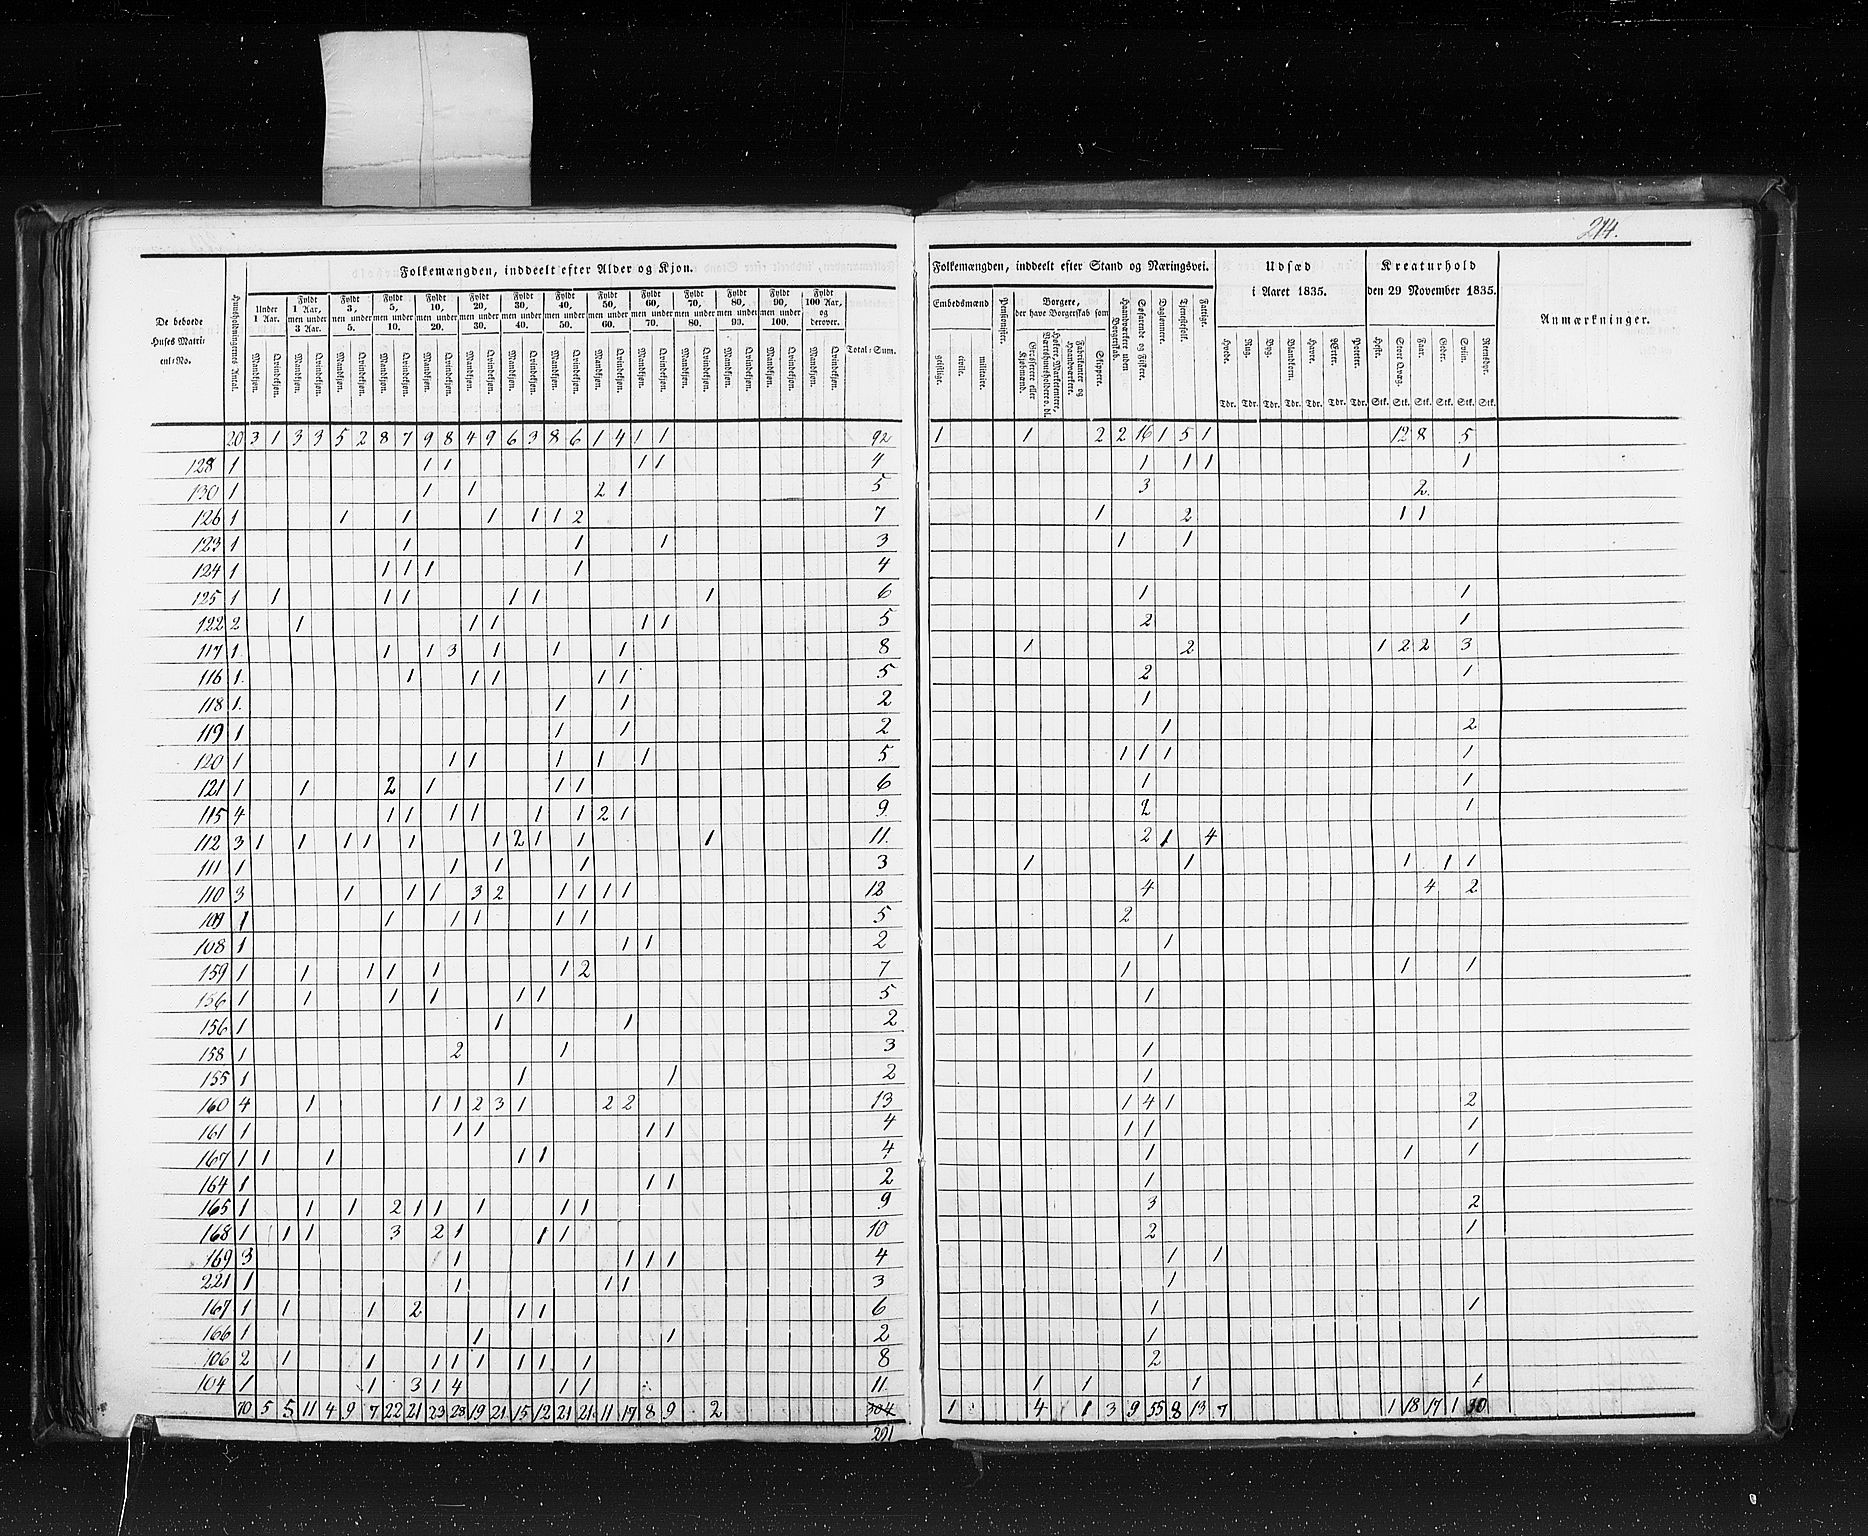 214.
Folkemængden, inddeelt efter Alder og Kjøn.
Folkemængden, inddeelt efter Stand og Næringsvei.
Udsæd i Aaret 1835.
Kreaturhold den 29 November 1835.
Anmærkninger.
De beboede Huses Matricul-No.
Huusholdningernes Antal.
Under 1 Aar.
Fyldt 1 Aar, men under 3 Aar.
Fyldt 3, men under 5.
Fyldt 5, men under 10.
Fyldt 10, men under 20.
Fyldt 20, men under 30.
Fyldt 30, men under 40.
Fyldt 40, men under 50.
Fyldt 50, men under 60.
Fyldt 60, men under 70.
Fyldt 70, men under 80.
Fyldt 80, men under 90.
Fyldt 90, men under 100.
Fyldt 100 Aar, og derover.
Mandkjøn. Qvindekjøn.
Total-Sum.
Embedsmænd
geistlige. civile. militaire.
Pensionister.
Borgere, der have Borgerskab som
Grosserere eller Kjøbmænd.
Fabrikanter og Haandværkere.
Skippere.
Haandværkere uden Borgerskab.
Søfarende og Fiskere.
Daglønnere.
Tjenestefolk.
Fattige.
Hvede. Rug. Byg. Blandkorn. Havre. Erter. Poteter.
Tdr. Tdr. Tdr. Tdr. Tdr. Tdr. Tdr.
Heste. Stort Qvæg. Faar. Geder. Sviin. Rensdyr.
Stk. Stk. Stk. Stk. Stk. Stk.
20 3 1 3 3 5 2 8 7 9 8 4 9 6 3 8 6 1 4 1 1 92 1 1 2 2 16 1 5 1 12 8 5
128 1 1 1 1 1 4 1 1 1 1
130 1 1 1 2 1 5 3 2
126 1 1 1 1 1 1 2 7 1 2 1 1
123 1 1 1 1 3 1 1
124 1 1 1 1 1 4
125 1 1 1 1 1 1 1 6 1 1
122 2 1 1 1 1 1 5 2 1
117 1 1 1 3 1 1 1 8 1 2 1 2 2 3
116 1 1 1 1 1 1 5 2 1
118 1 1 1 2 1
119 1 1 1 2 1 2
120 1 1 1 1 1 1 5 1 1 1 1
121 1 1 2 1 1 1 6 1 1
115 4 1 1 1 1 1 1 2 1 9 2 1
112 3 1 1 1 1 1 1 2 1 1 1 11 2 1 4
111 1 1 1 1 3 1 1 1 1 1
110 3 1 1 1 3 2 1 1 1 1 12 4 4 2
109 1 1 1 1 1 1 5 2
108 1 1 1 2 1
159 1 1 1 1 1 1 2 7 1 1 1
156 1 1 1 1 1 1 5 1
156 1 1 1 2
158 1 2 1 3 1
155 1 1 1 2 1
160 4 1 1 1 2 3 1 2 2 13 1 4 1 2
161 1 1 1 1 1 4 1 1 1
167 1 1 1 1 1 4 1 1 1
164 1 1 1 2 1
165 1 1 1 2 1 1 1 1 1 9 3 2
168 1 1 1 3 2 1 1 1 10 2 1
169 3 1 1 1 1 4 1 1
221 1 1 1 1 3 1
167 1 1 1 2 1 1 6 1 1
166 1 1 1 2 1
106 2 1 1 1 1 1 1 1 1 8 2
104 1 1 3 1 4 1 1 11 1 1 1 1
70 5 5 11 4 9 7 22 21 23 28 19 21 15 12 21 21 11 17 8 9 2 304 1 4 1 3 9 55 8 13 7 1 18 17 1 30
291